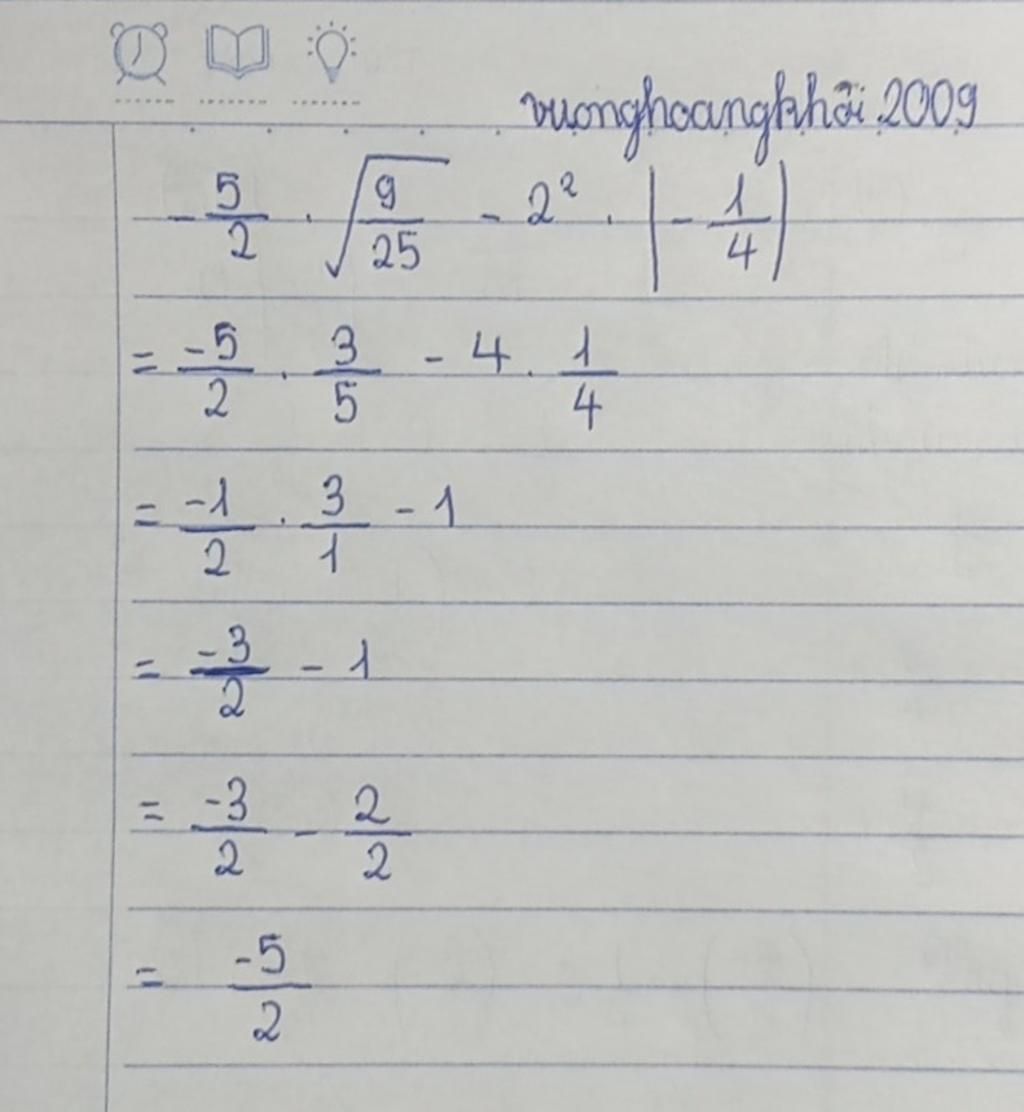 vuonghoangkhôi 2009
-5/2 . √(9/25) - 2² . |-1/4|
= -5/2 . 3/5 - 4 . 1/4
= -1/2 . 3/1 - 1
= -3/2 - 1
= -3/2 - 2/2
= -5/2